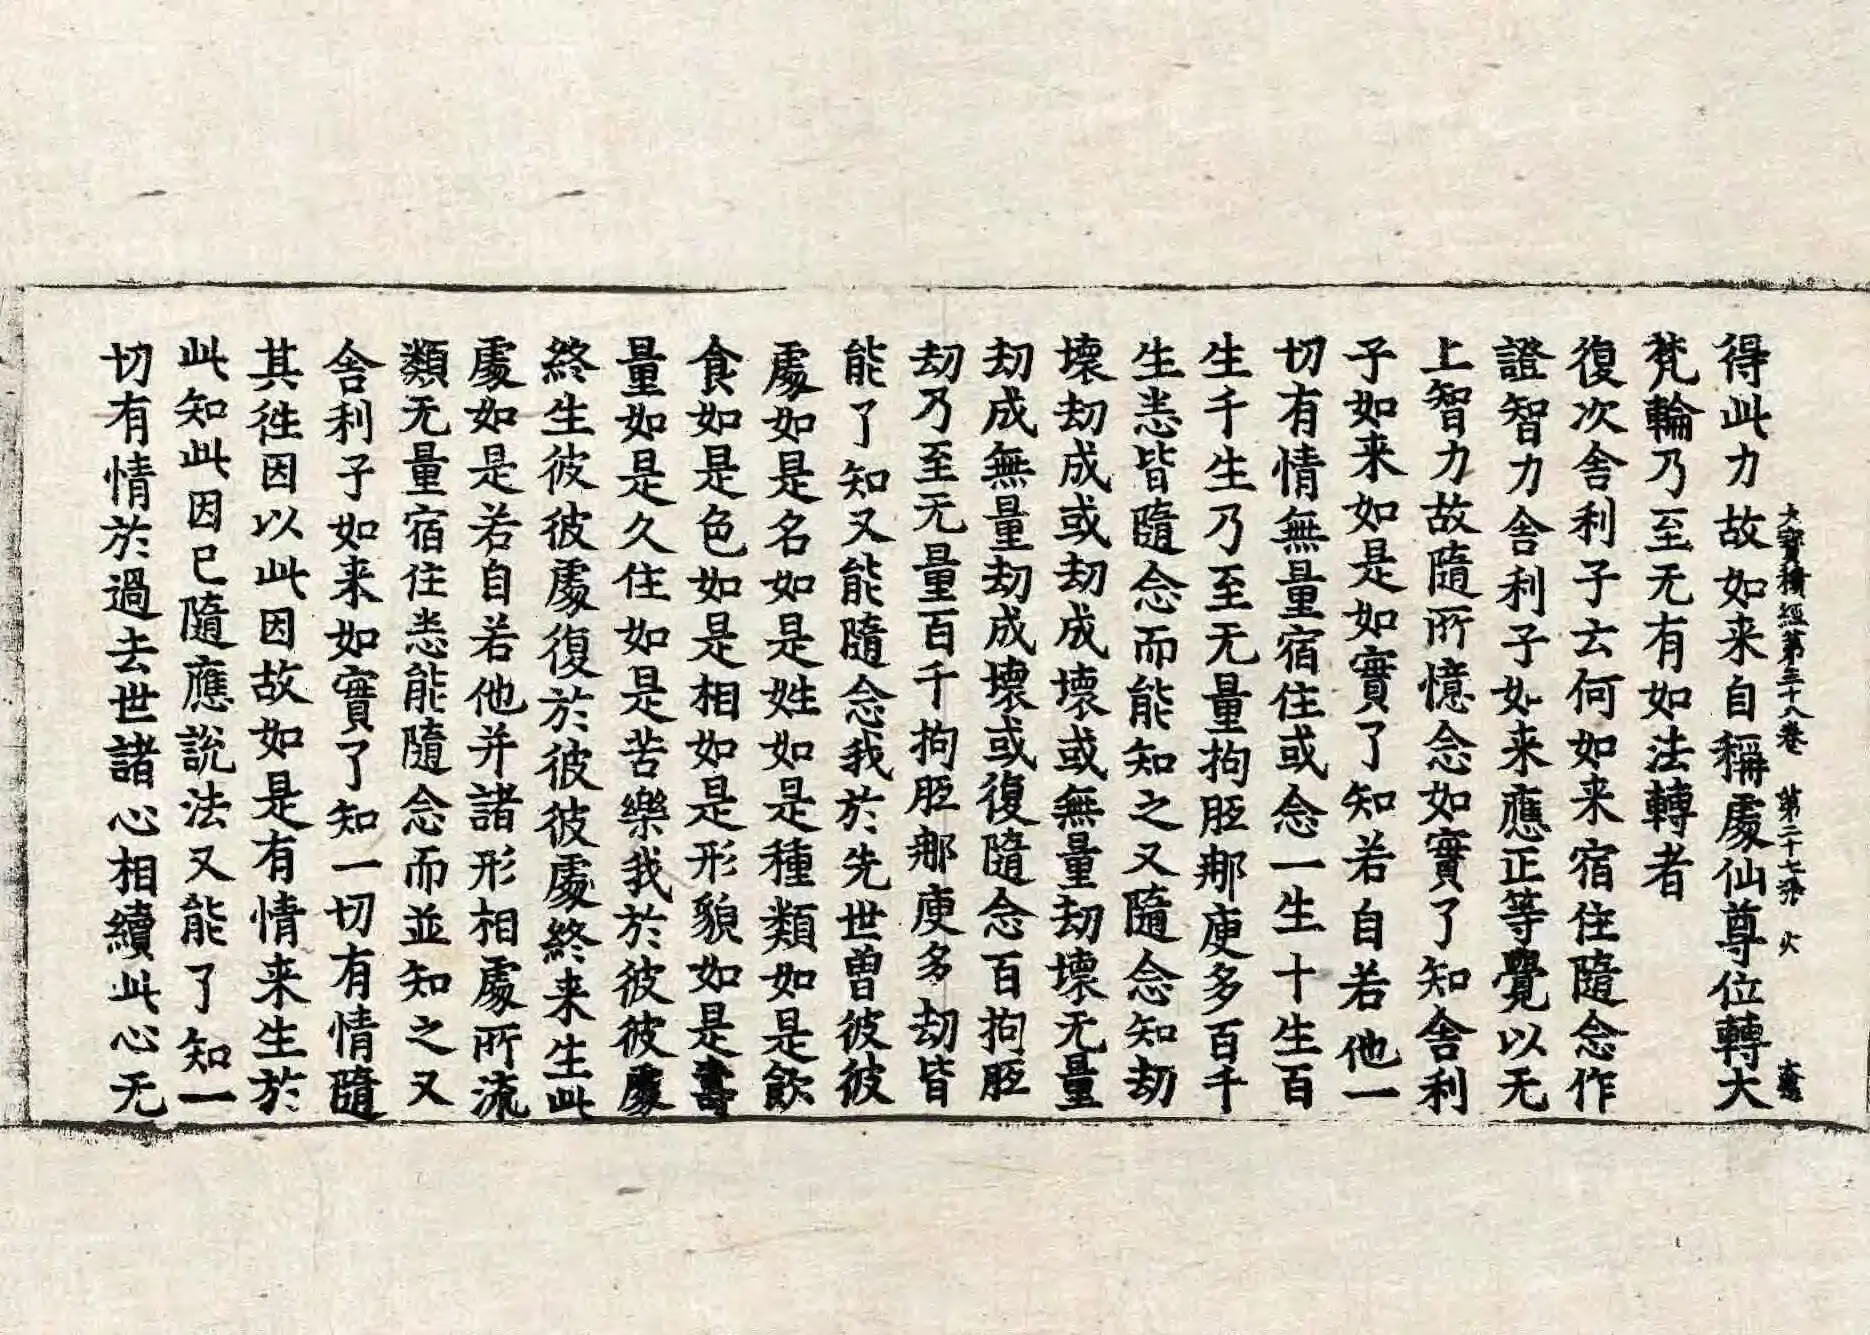 大寶積經第三十八卷 第二十七張 火
得此力故如来自稱處仙尊位轉大
梵輪乃至无有如法轉者
復次舎利子云何如来宿住隨念作
證智力舎利子如来應正等覺以无
上智力故隨所憶念如實了知舎利
子如来如是如實了知若自若他一
切有情無量宿住或念一生十生百
生千生乃至无量拘胝那庾多百千
生悉皆隨念而能知之又隨念知劫
壞劫成或劫成壞或無量劫壞无量
劫成無量劫成壞或復隨念百拘胝
劫乃至无量百千拘胝那庾多劫皆
能了知又能隨念我於先世曾彼彼
處如是名如是姓如是種類如是飲
食如是色如是相如是形貌如是壽
量如是久住如是苦樂我於彼彼處
終生彼彼處復於彼彼處終来生此
處如是若自若他并諸形相處所流
類无量宿住悉能隨念而並知之又
舎利子如来如實了知一切有情隨
其徃因以此因故如是有情来生於
此知此因已隨應說法又能了知一
切有情於過去世諸心相續此心无